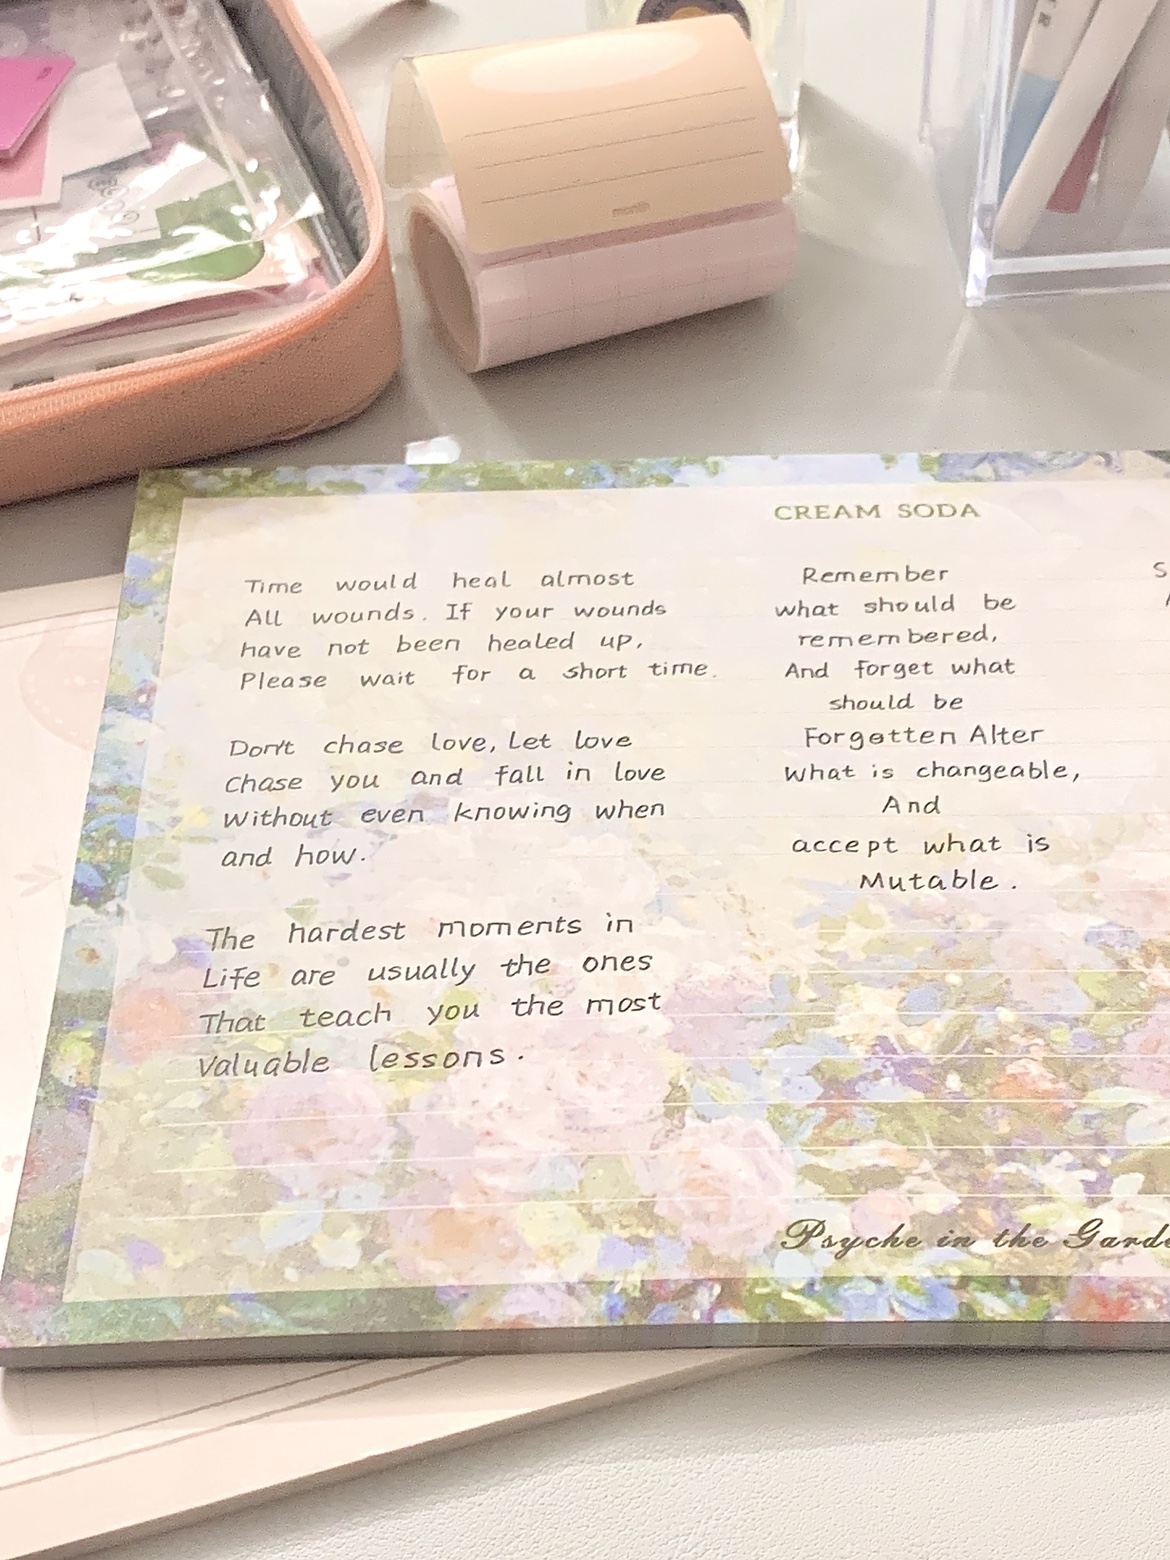 month
CREAM SODA
Time would heal almost
All wounds. If your wounds
have not been healed up,
Please wait for a short time.
Don't chase love, Let love
Chase you and fall in love
Without even knowing when
and how.
The hardest moments in
Life are usually the ones
That teach you the most
Valuable lessons.
Remember
what should be
remembered,
And forget what
should be
Forgotten Alter
What is changeable,
And
accept what is
Mutable.
S
Psyche in the Garde